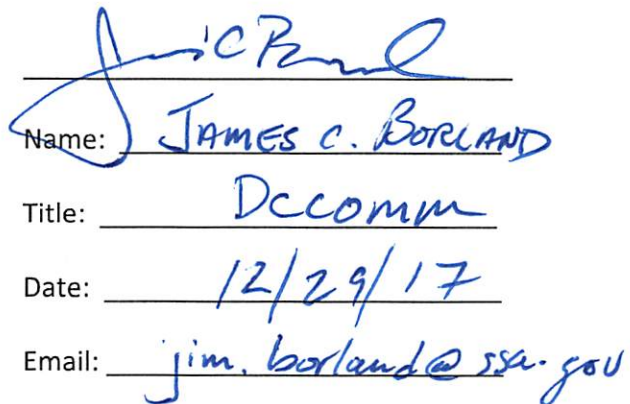 Name: JAMES C. BORLAND
Title: DCCOMM
Date: 12/29/17
Email: jim.borland@ssa.gov